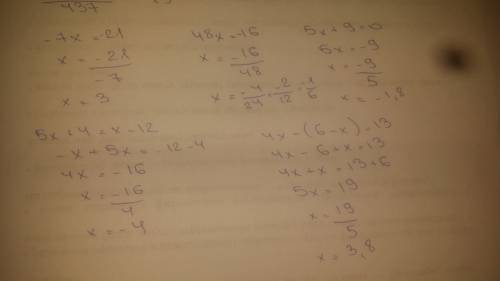 437
-7x = -21
x = -21/-7
x = 3
48x = -16
x = -16/48
x = -4/24 = -2/12 = -1/6
5x + 9 = 0
5x = -9
x = -9/5
x = -1,8
5x + 4 = x - 12
-x + 5x = -12 - 4
4x = -16
x = -16/4
x = -4
4x - (6 - x) = 13
4x - 6 + x = 13
4x + x = 13 + 6
5x = 19
x = 19/5
x = 3,8